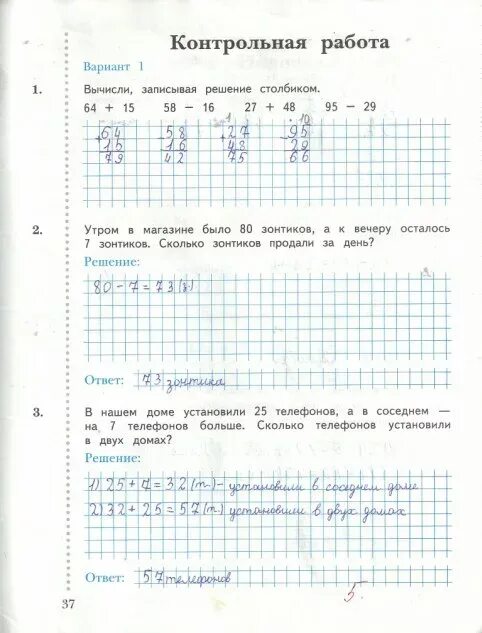 Контрольная работа
Вариант 1
1. Вычисли, записывая решение столбиком.
64 + 15 58 − 16 27 + 48 95 − 29
1 · 10
64 58 27 95
+ − + −
15 16 48 29
79 42 75 66
2. Утром в магазине было 80 зонтиков, а к вечеру осталось
7 зонтиков. Сколько зонтиков продали за день?
Решение:
80 − 7 = 73 (з)
Ответ: 73 зонтика
3. В нашем доме установили 25 телефонов, а в соседнем —
на 7 телефонов больше. Сколько телефонов установили
в двух домах?
Решение:
1) 25 + 7 = 32 (т.) – установили в соседнем доме
2) 32 + 25 = 57 (т.) установили в двух домах
Ответ: 57 телефонов
5
37